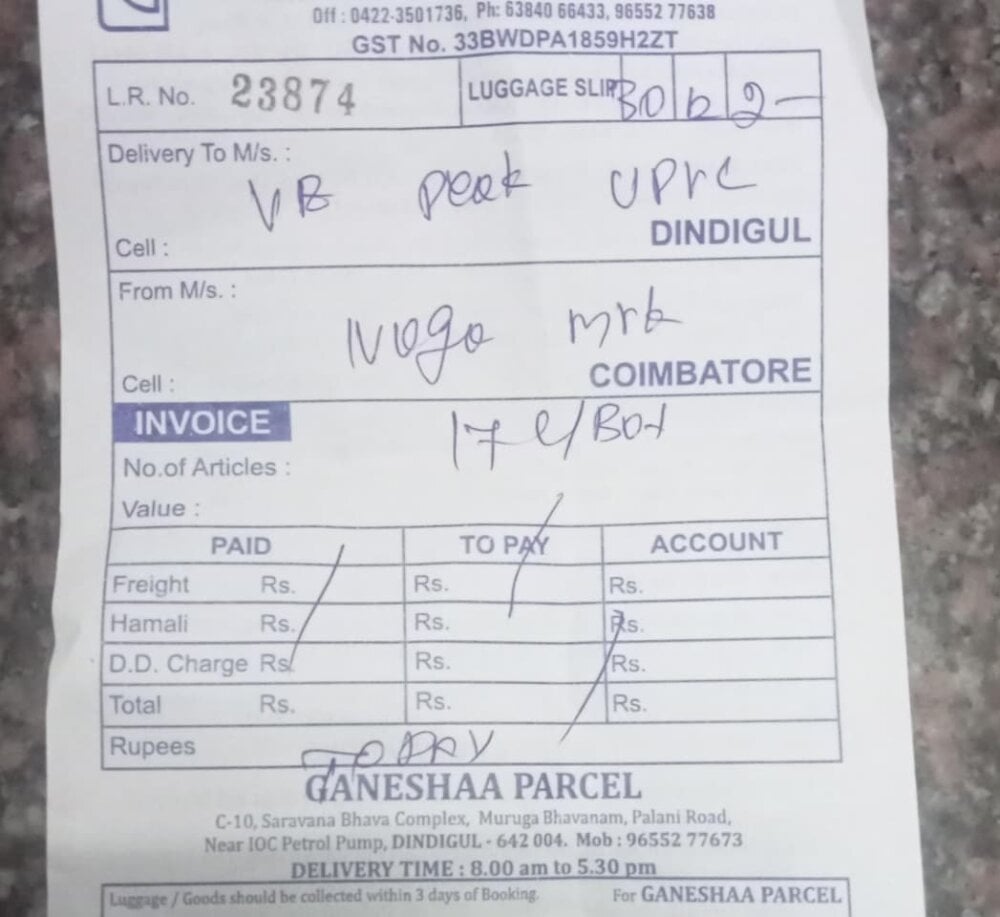 Off : 0422-3501736, Ph: 63840 66433, 96552 77638
GST No. 33BWDPA1859H2ZT
L.R. No. 23874 LUGGAGE SLIP
Delivery To M/s. :
VB Peak UPVC
Cell : DINDIGUL
From M/s. :
mrk
Cell : COIMBATORE
INVOICE
No.of Articles :
Value :
PAID TO PAY ACCOUNT
Freight Rs. Rs. Rs.
Hamali Rs. Rs. Rs.
D.D. Charge Rs. Rs. Rs.
Total Rs. Rs. Rs.
Rupees TO PAY
GANESHAA PARCEL
C-10, Saravana Bhava Complex, Muruga Bhavanam, Palani Road,
Near IOC Petrol Pump, DINDIGUL - 642 004. Mob : 96552 77673
DELIVERY TIME : 8.00 am to 5.30 pm
Luggage / Goods should be collected within 3 days of Booking. For GANESHAA PARCEL